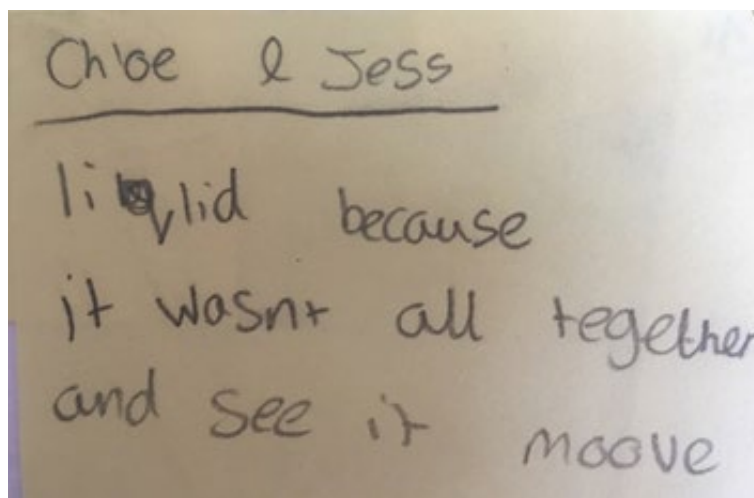 Chloe & Jess
liqlid because
it wasnt all tegether
and see it moove